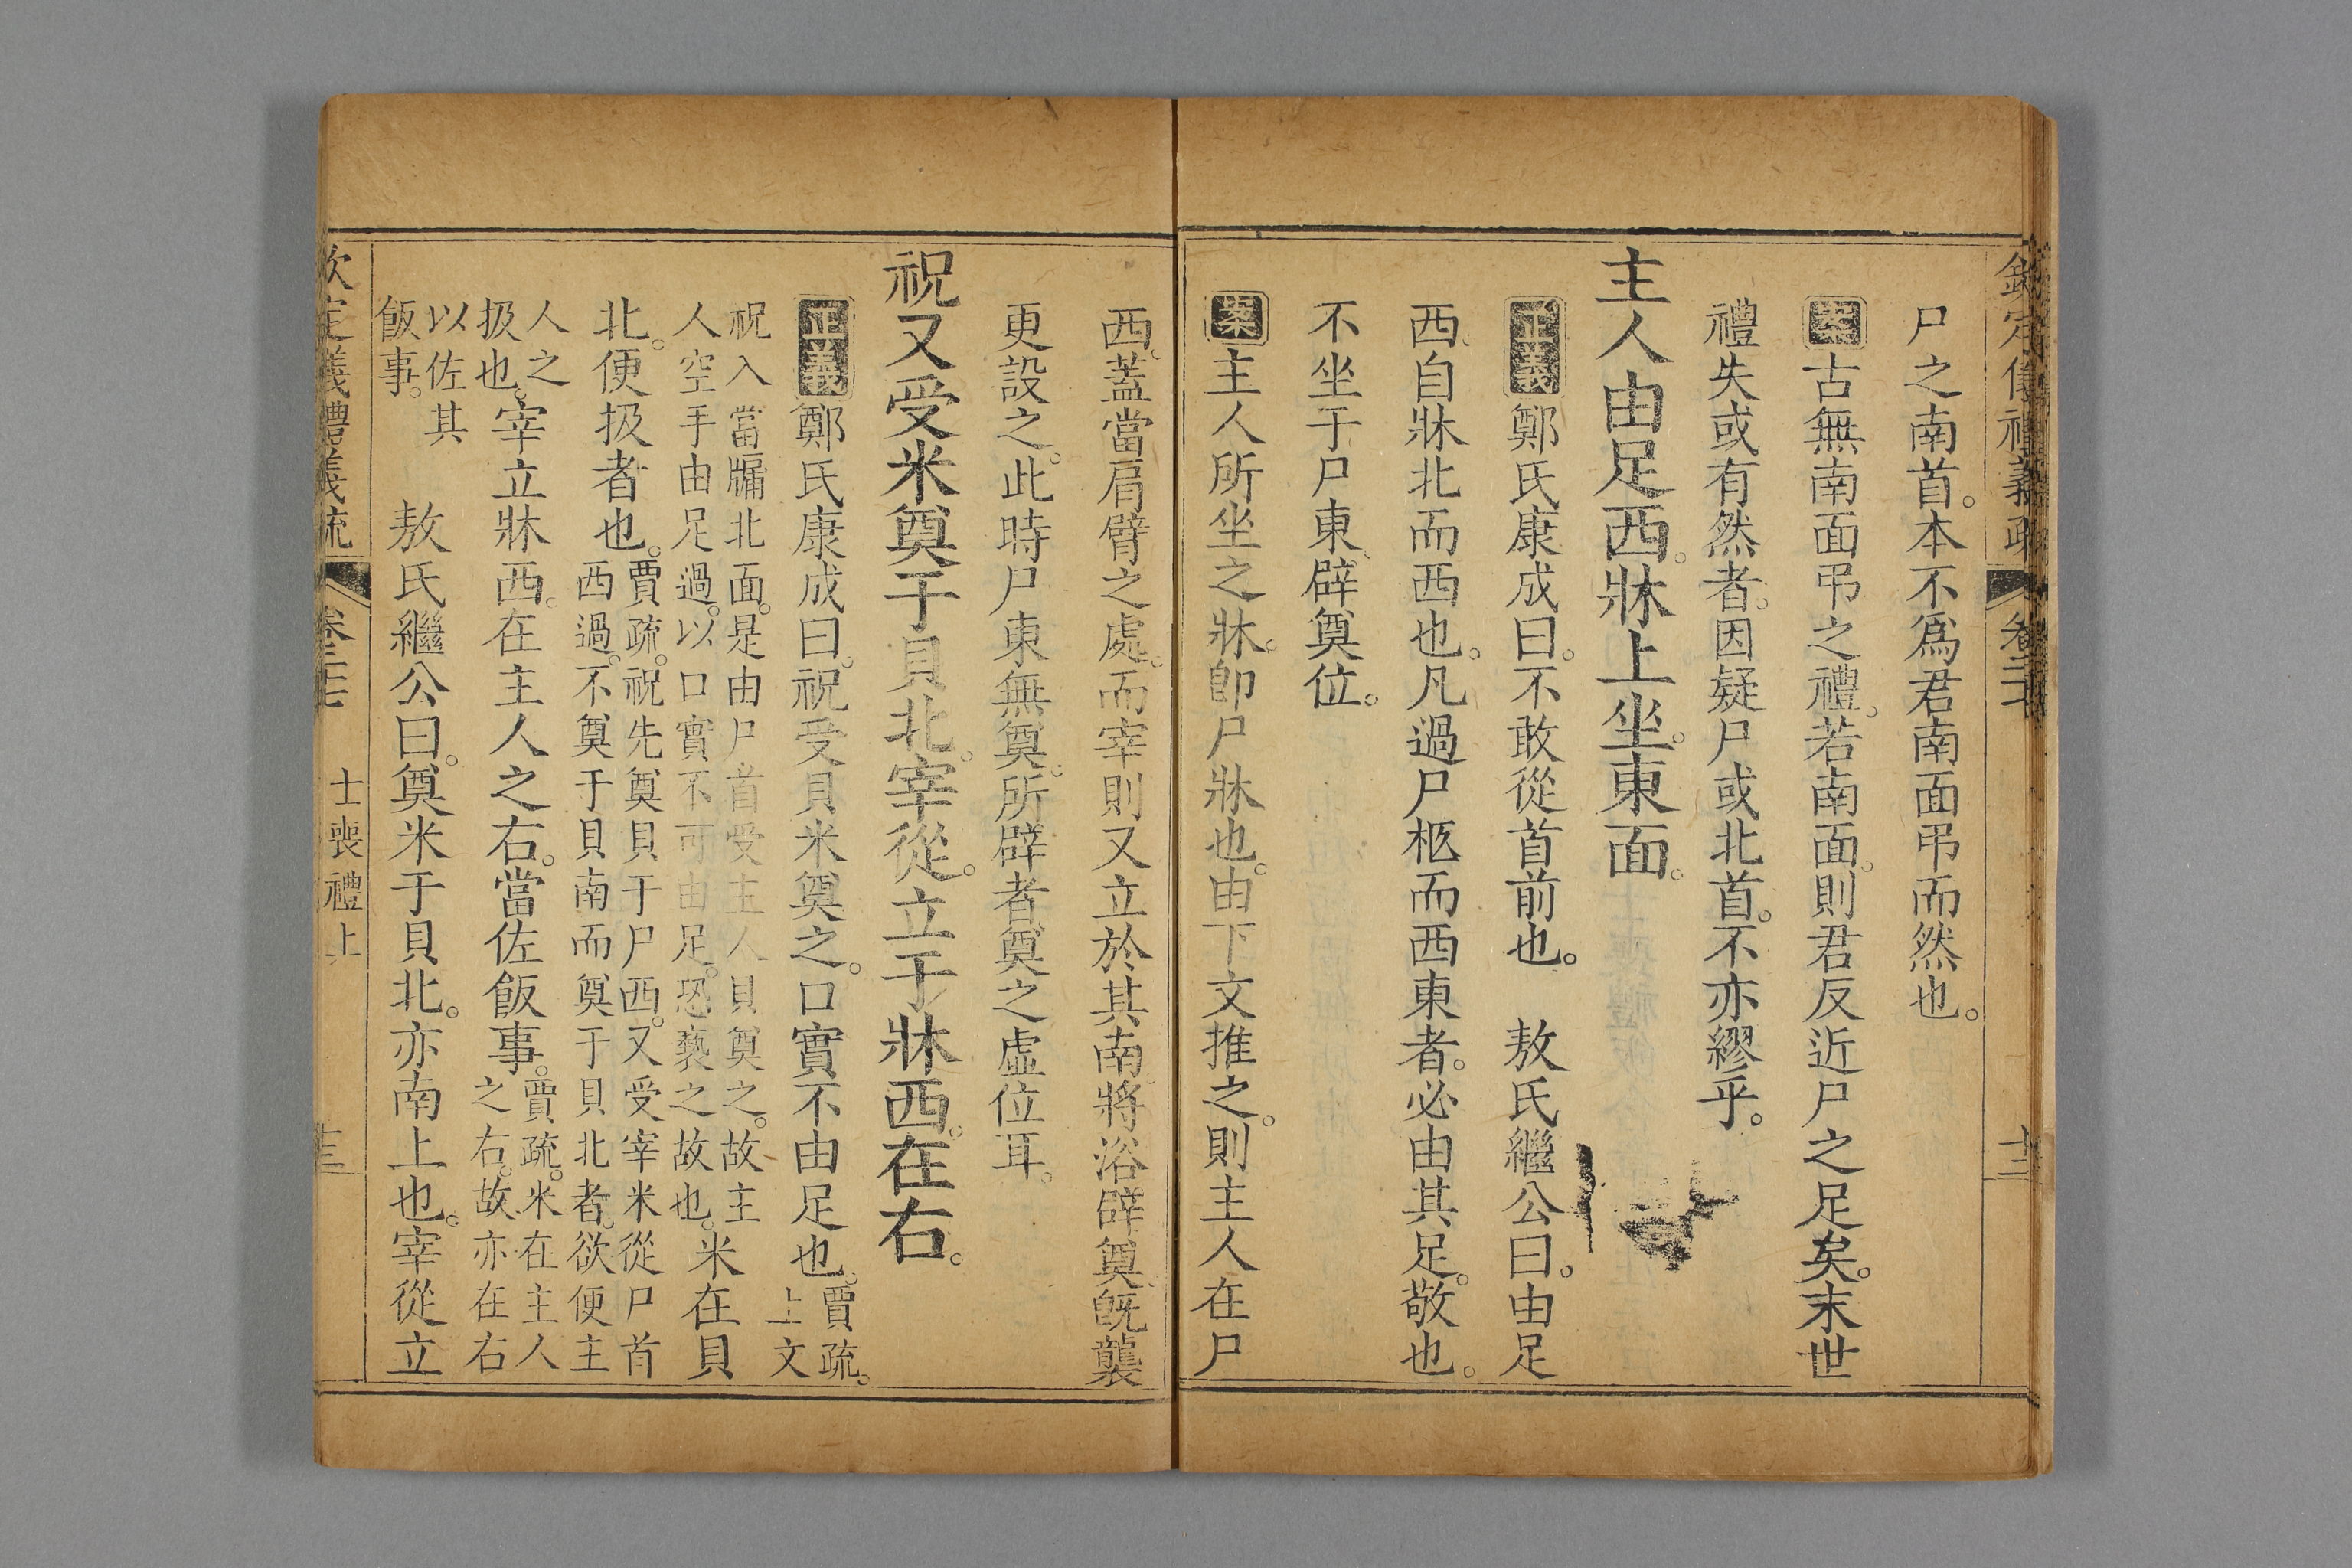 欽定儀禮義疏 卷二十七 十二
尸之南首。本不爲君南面弔而然也。
案古無南面弔之禮。若南面。則君反近尸之足矣。末世
禮失或有然者。因疑尸或北首。不亦繆乎。
主人由足西。牀上坐。東面。
正義鄭氏康成曰。不敢從首前也。 敖氏繼公曰。由足
西、自牀北而西也。凡過尸柩而西東者。必由其足。敬也。
不坐于尸東、辟奠位。
案主人所坐之牀。卽尸牀也。由下文推之。則主人在尸
西。蓋當肩臂之處。而宰則又立於其南、將浴辟奠、旣襲
更設之。此時尸東無奠。所辟者、奠之虛位耳。
祝又受米奠于貝北。宰從。立于牀西。在右。
正義鄭氏康成曰。祝受貝米奠之。口實不由足也。賈疏。
上文
祝入當牖北面。是由尸首受主人貝奠之。故主
人空手由足過。以口實不可由足。恐褻之故也。米在貝
北。便扱者也。賈疏。祝先奠貝于尸西。又受宰米從尸首
西過。不奠于貝南而奠于貝北者。欲便主
人之
扱也。宰立牀西。在主人之右。當佐飯事。賈疏。米在主人
之右。故亦在右
以佐其
飯事。 敖氏繼公曰。奠米于貝北。亦南上也。宰從立
欽定儀禮義疏 卷二十七 士喪禮上 十三